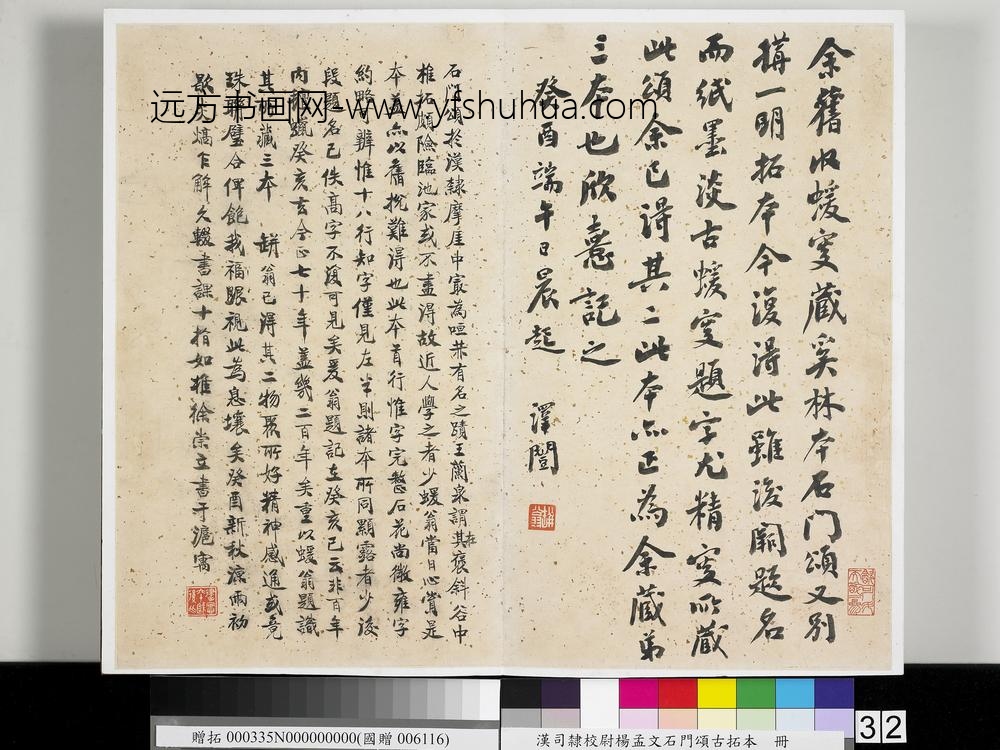 余舊收蝯叟藏奚林本石門頌又別
搨一明拓本今復得此雖後闕題名
而紙墨淡古蝯叟題字尤精叟所藏
此頌余已得其二此本亦正為余藏弟
三本也欣憙記之
癸酉端午日晨起 澤闓
石門頌於漢隸摩厓中㝡為烜赫有名之蹟王蘭泉謂其在褒斜谷中
椎拓頗險臨池家或不盡得故近人學之者少蝯翁當日心賞是
本蓋亦以舊拓難得也此本首行惟字完整石花尚微雍字
約略可辨惟十八行知字僅見左半則諸本所同顯露者少後
段題名已佚高字不復可見矣爰翁題記在癸亥已云非百年
內 癸亥去今正七十年蓋幾二百年矣重以蝯翁題識
其 藏三本 缾翁已得其二物聚所好精神感通或竟
珠聯璧合俾飽我福眼視此為息壤矣癸酉新秋涼雨初
歇 熇乍解久輟書課十指如椎徐崇立書于滬寓
远方书画网-www.yfshuhua.com
32
贈拓 000335N000000000(國贈 006116)
漢司隸校尉楊孟文石門頌古拓本 冊